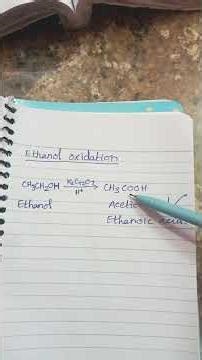 Ethanol oxidation
CH₃CH₂OH K₂Cr₂O₇ → CH₃COOH
H⁺
Ethanol Acetic
Ethanoic acid